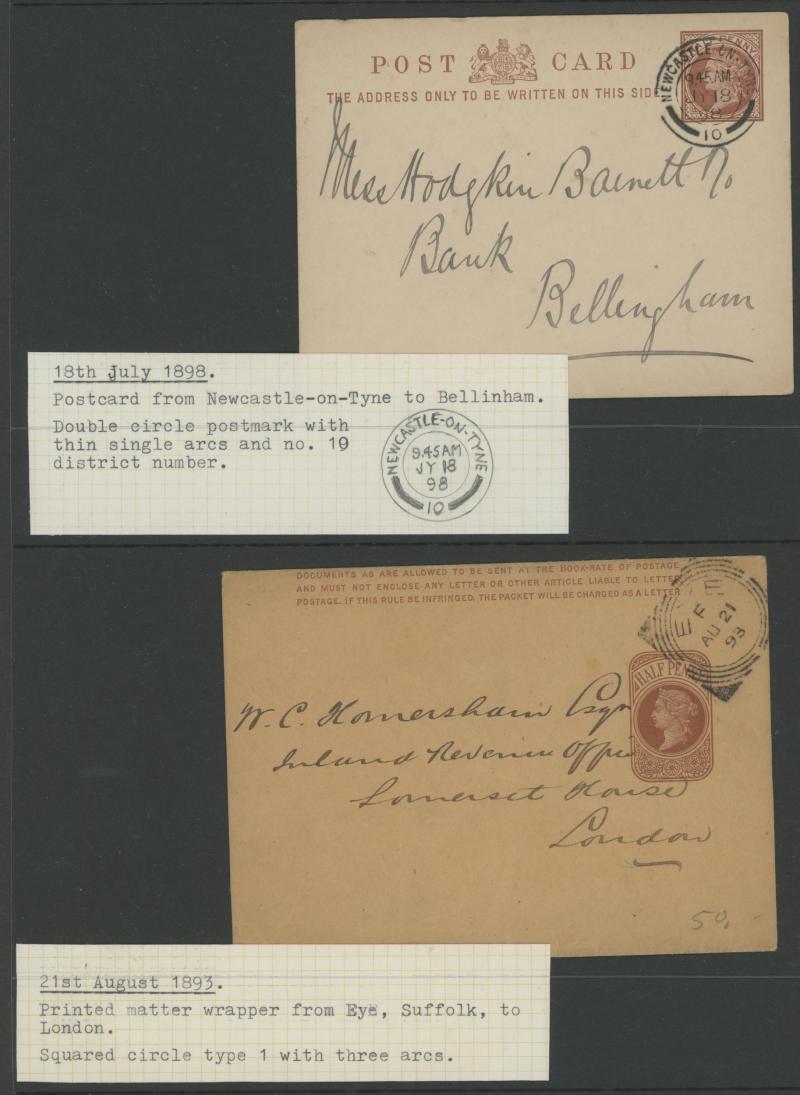 POST CARD
THE ADDRESS ONLY TO BE WRITTEN ON THIS SIDE
PENNY
NEWCASTLE ON-TYNE
9.45 AM
JY 18
98
10
Mess Hodgkin Barnett &Co
Bank
Bellingham
18th July 1898.
Postcard from Newcastle-on-Tyne to Bellinham.
Double circle postmark with
thin single arcs and no. 10
district number.
NEWCASTLE-ON-TYNE
9.45AM
JY 18
98
10
DOCUMENTS AS ARE ALLOWED TO BE SENT AT THE BOOK-RATE OF POSTAGE
AND MUST NOT ENCLOSE ANY LETTER OR OTHER ARTICLE LIABLE TO LETTER
POSTAGE. IF THIS RULE BE INFRINGED, THE PACKET WILL BE CHARGED AS A LETTER
EYE
F
AU 21
93
HALF PENNY
W. C. Homersham Esqr
Inland Revenue Office
Somerset House
London
50
21st August 1893.
Printed matter wrapper from Eye, Suffolk, to
London.
Squared circle type 1 with three arcs.